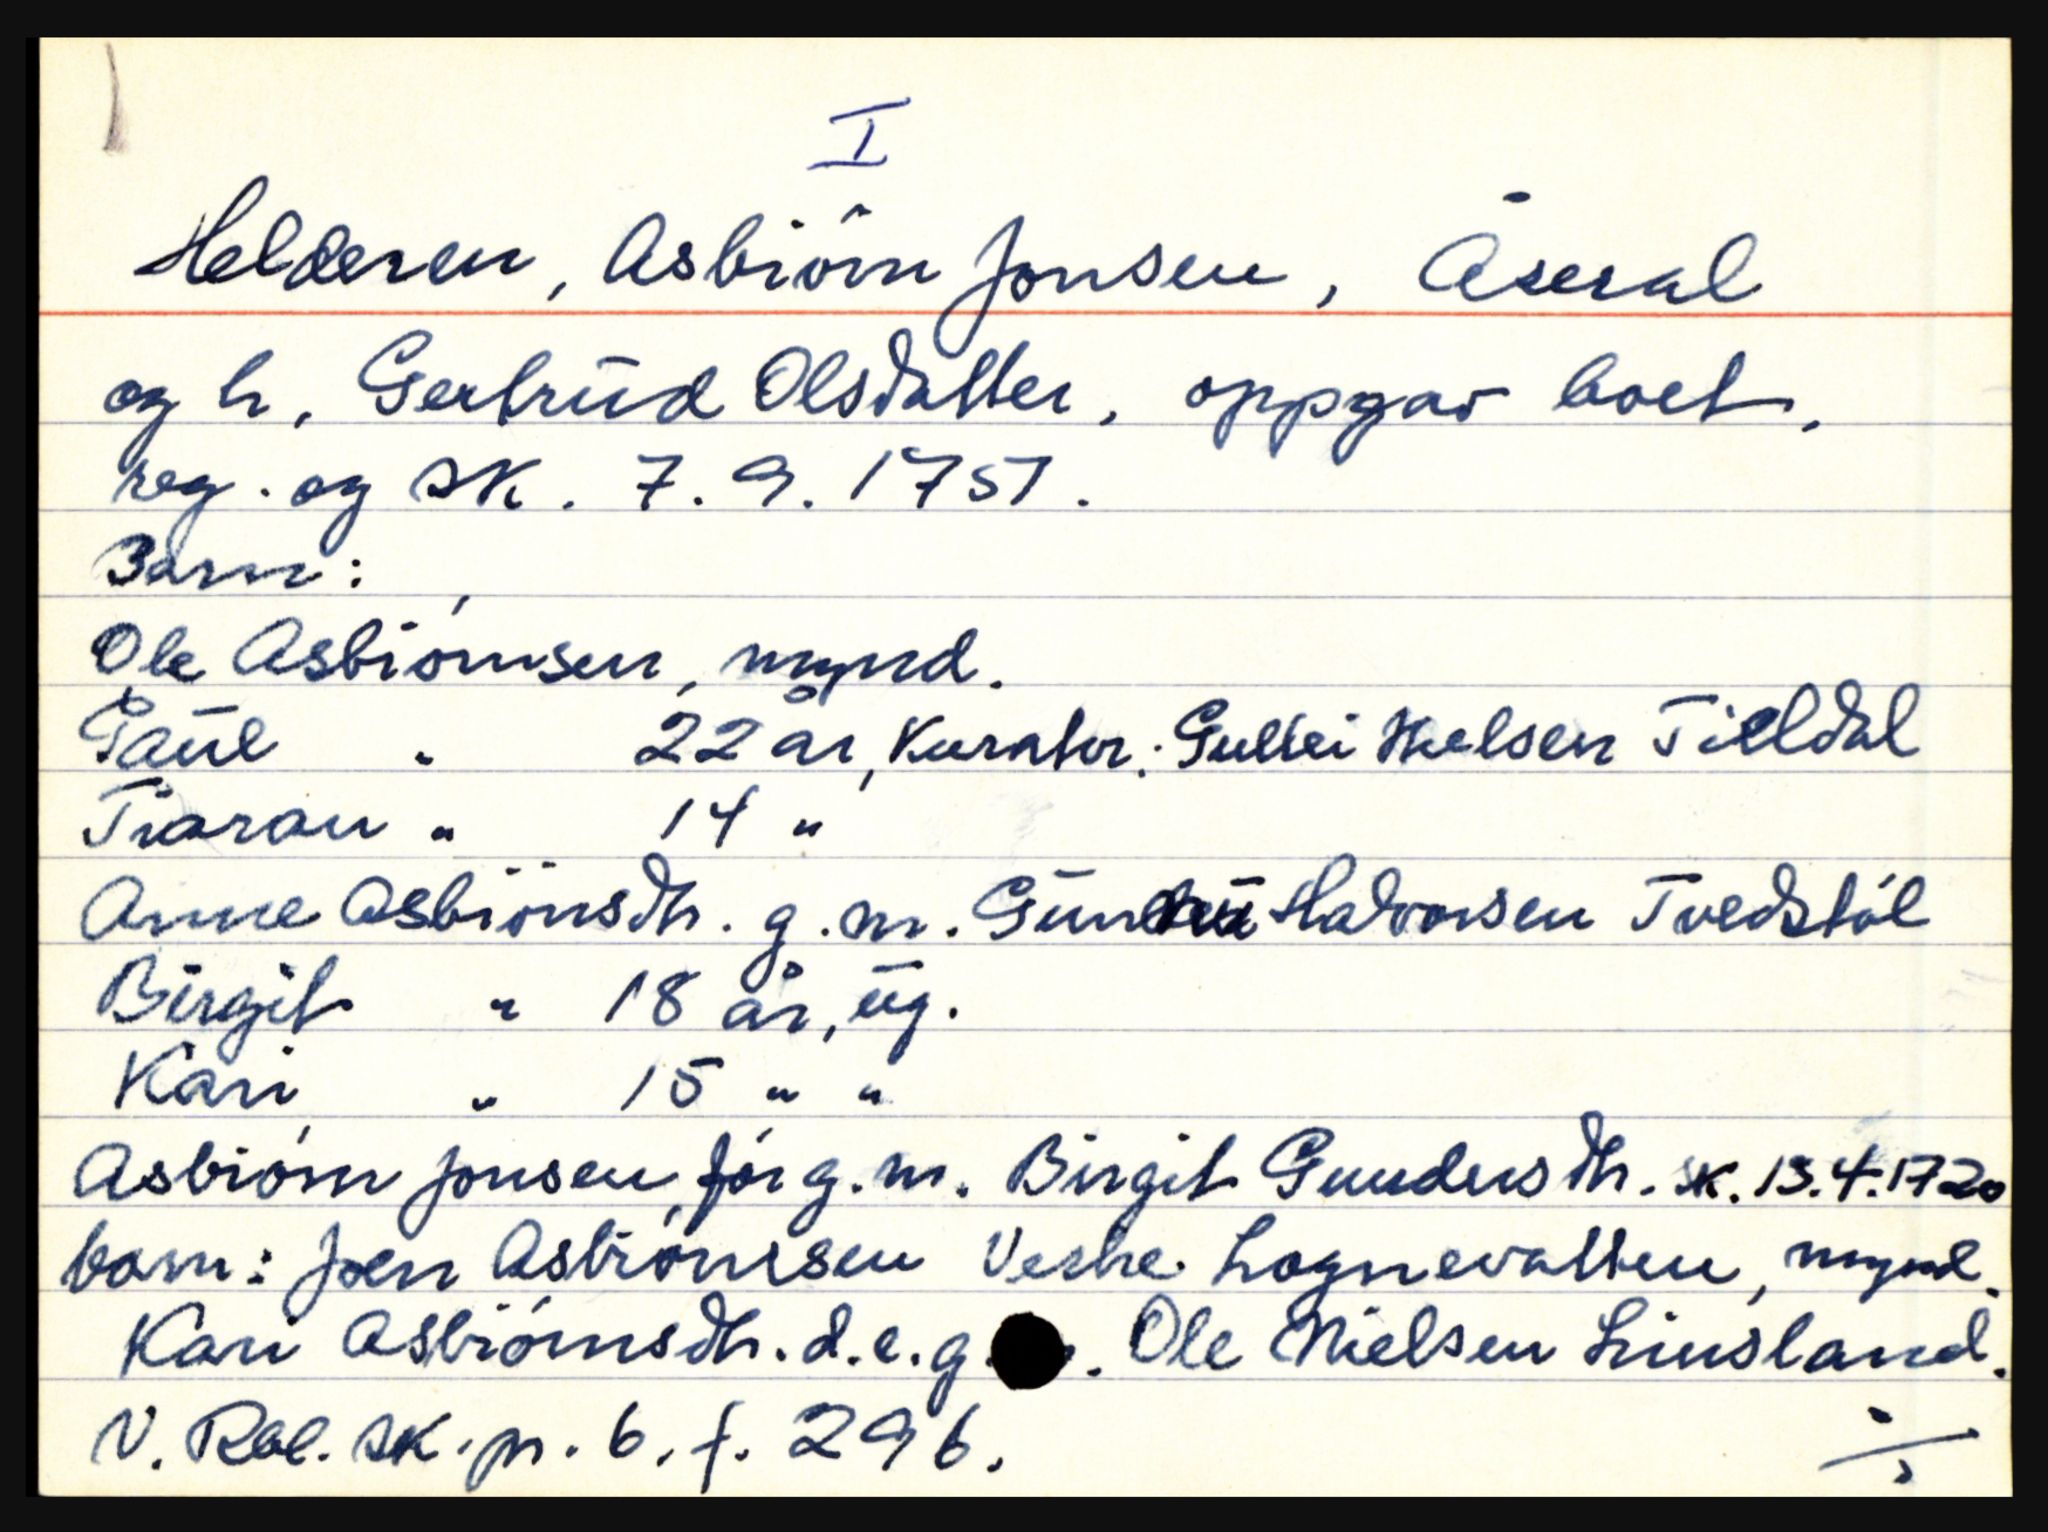 I
Helderen, Asbiörn Jonsen, Åseral
og h. Gertrud Olsdatter, oppgav boet,
reg. og sk. 7.9.1757.
Barn:
Ole Asbiörnsen, mynd.
Paul " 22 år, Kurator: Gullei Nielsen Tieldal
Tiaran " 14 "
Anne Asbiörnsdtr. g.m. Halvorsen Tvedstöl
Birgit " 18 år, ug.
Kari " 15 " "
Asbiörn Jonsen för g.m. Birgit Gundersdtr. sk. 13.4.1720
barn: Joen Asbiörnsen Vestre Lognevatten, mynd.
Kari Asbiörnsdtr. d.e.g. Ole Nielsen Linsland.
N. Rbl. sk.pr. 6. f. 296.